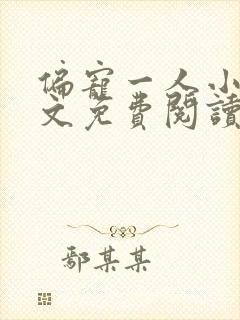 偏寵一人小
文免費閱讀
鄢某某